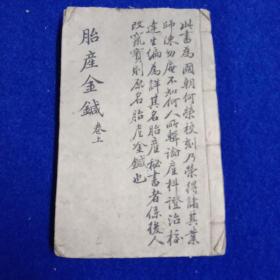 此書為國朝何榮校刻乃榮得諸其業
師陳勿庵不知何人所輯論產科證治
達生編為詳其名胎產秘書者係後人
改竄實則原名胎產金鍼也
胎產金鍼 卷上